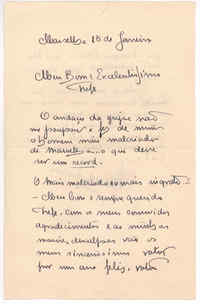 Marselha 18 de Janeiro
Meu Bom e Excelentíssimo
Chefe
O andaço da gripe não
me poupou e fez de mim
o homem mais malcriado
de Marselha... o que deve
ser um record.
O mais malcriado e o mais ingrato
– Meu bom e sempre querido
Chefe, com os meus comovidos
agradecimentos e as minhas
maiores desculpas vão os
meus sinceríssimos votos
por um ano feliz, votos